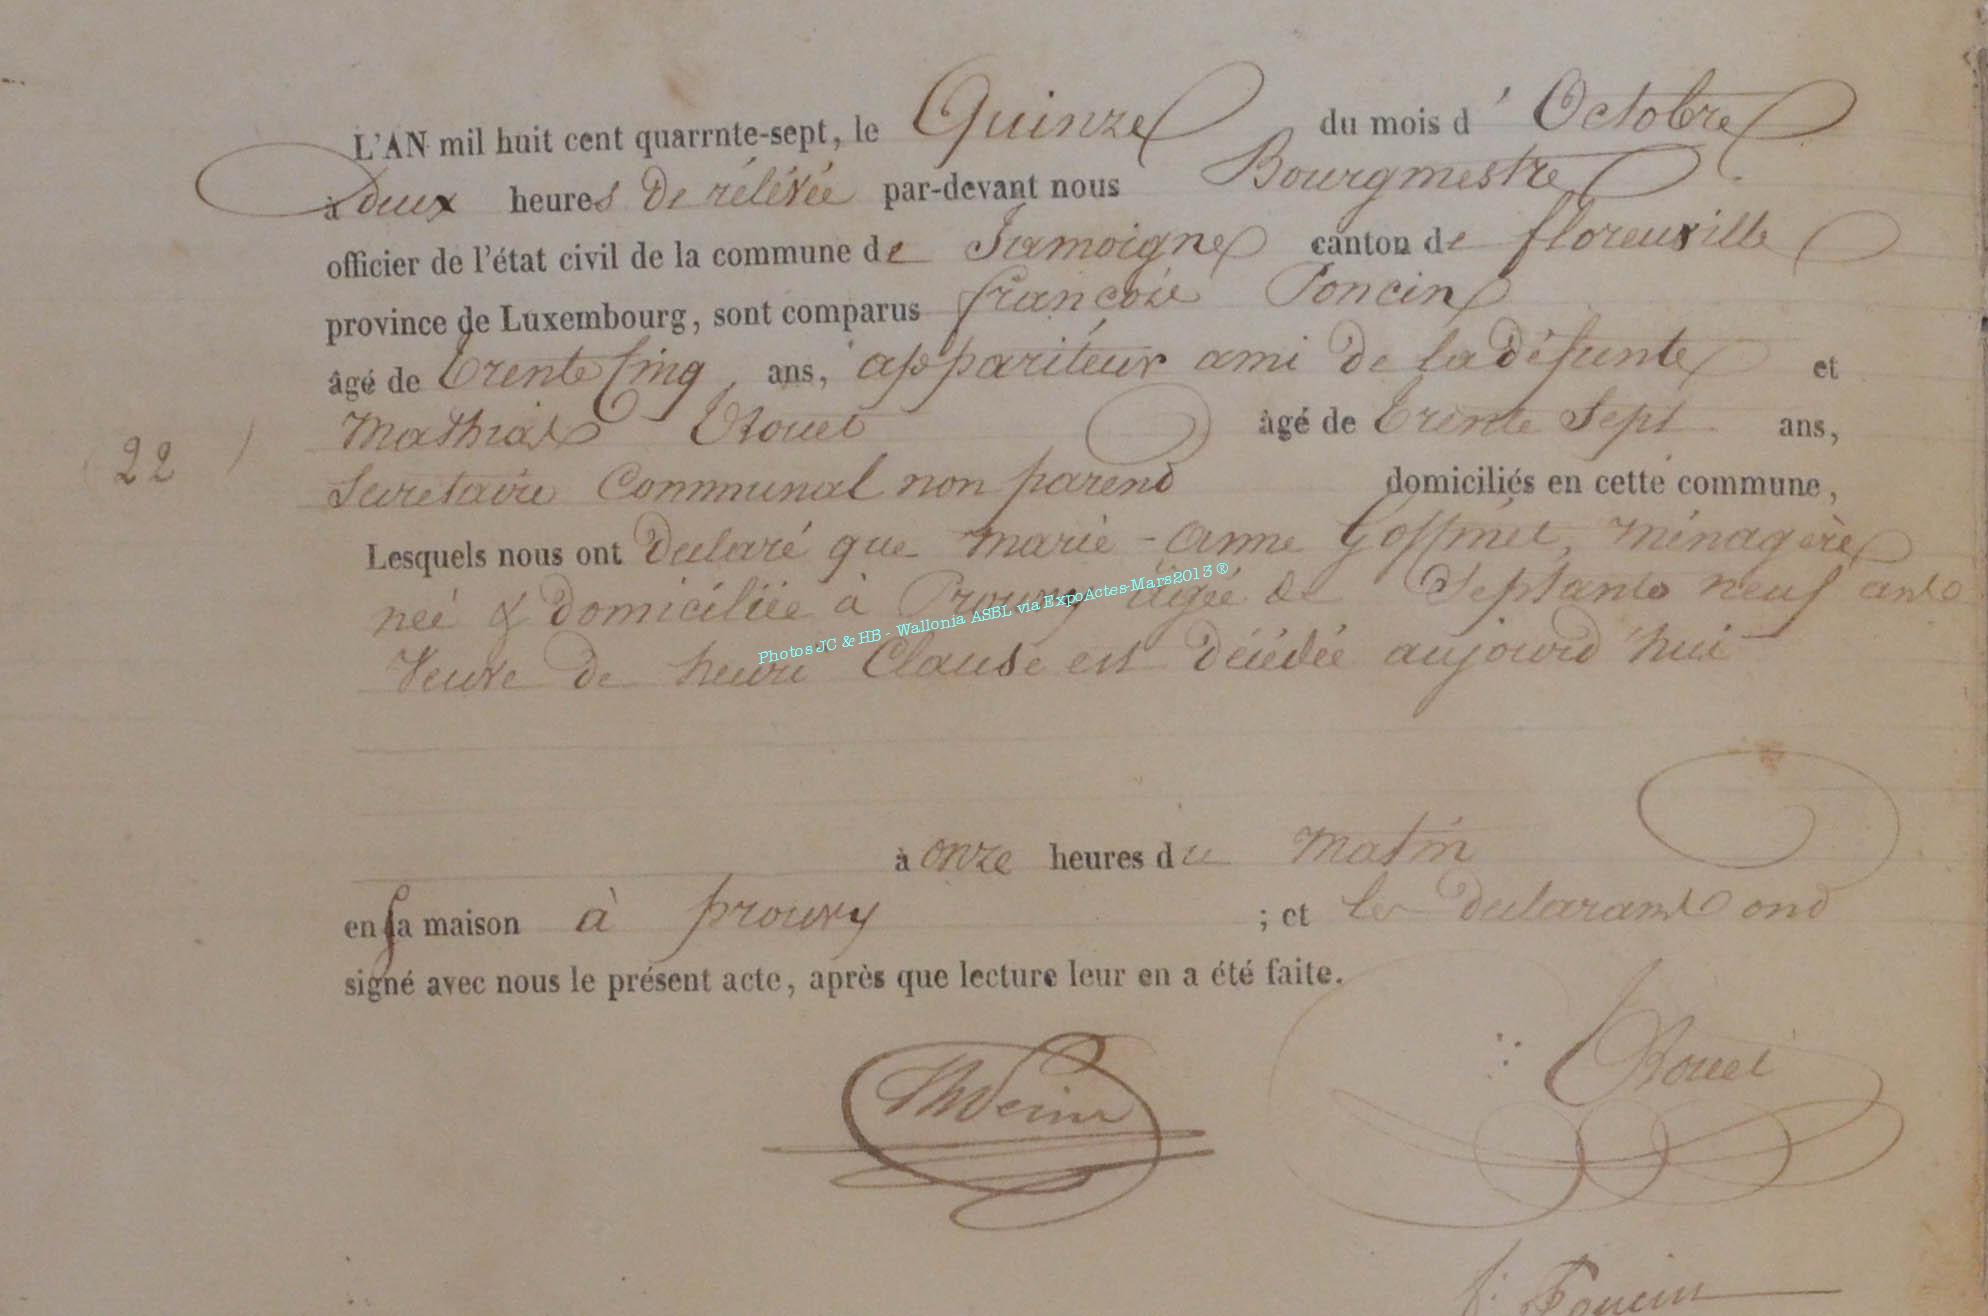 L'AN mil huit cent quarrnte-sept, le Quinze du mois d' Octobre
à deux heures de rélévée par-devant nous Bourgmestre
officier de l'état civil de la commune de Jamoigne canton de florenville
province de Luxembourg, sont comparus françois Poncin
âgé de trente cinq ans, appariteur ami de la défunte et
Mathias âgé de trente sept ans,
22
Secretaire Communal non parend domiciliés en cette commune,
Lesquels nous ont declaré que Marie-Anne Goffinet, ménagère
neé & domiciliée à Prouvy âgée de Septante neuf ans
Veuve de henri Clause est décédée aujourd'hui
Photos JC & HB - Wallonia ASBL via ExpoActes-Mars2013 ®
à onze heures du matin
en sa maison à prouvy ; et les declarants ond
signé avec nous le présent acte, après que lecture leur en a été faite.
f. Poncin